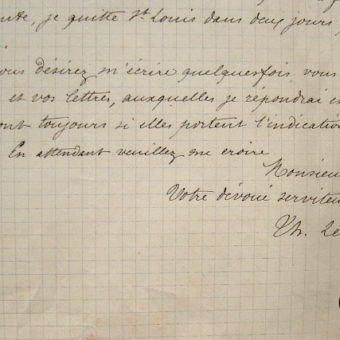 je quitte St. Louis dans deux jours
vous désirez m'écrire quelquesfois, vous
et vos lettres, auxquelles je répondrai
toujours si elles portent l'indication
En attendant veuillez me croire
Monsieur
Votre dévoué serviteur
Th. Le